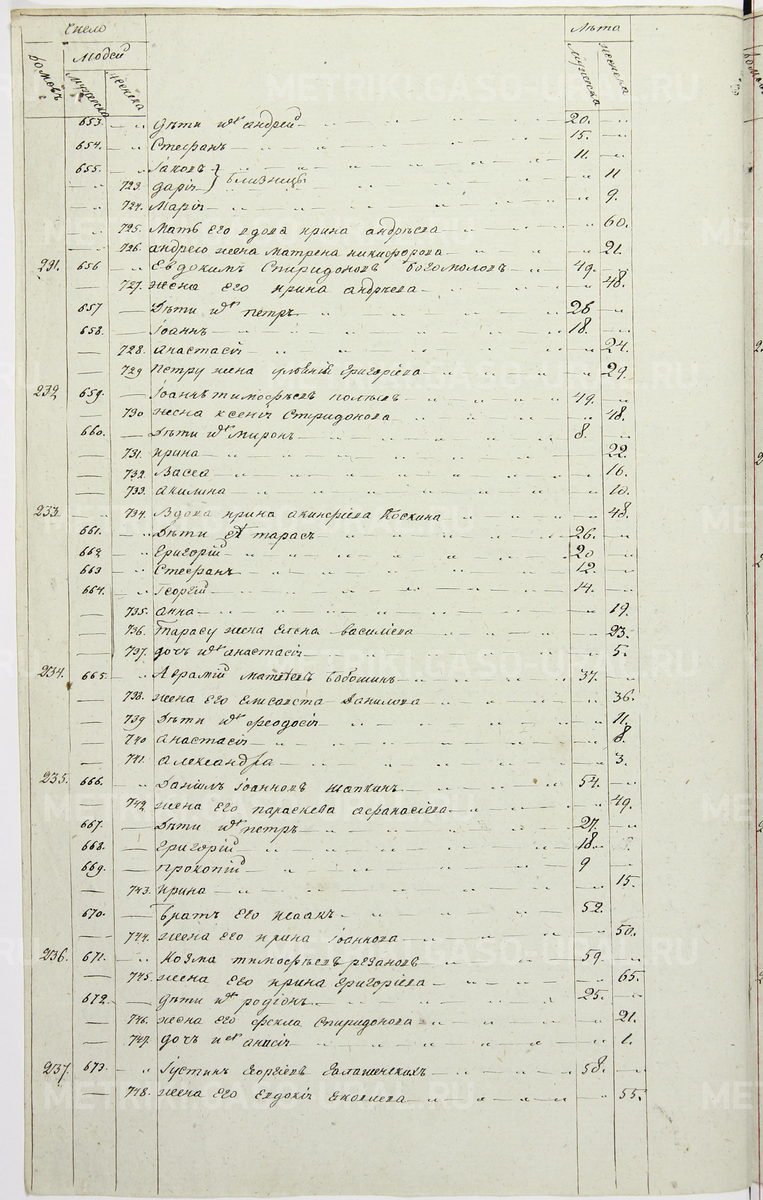 Число
Людей
Лѣта
домовъ
мужеска
женска
мужеска
женска
653. дѣти ихъ андрей 20.
654. Стефанъ 15.
655. Іаковъ 11.
723. дарія близнецы 11
724. Марія 9.
725. Мать его вдова ирина андрѣева 60.
726. андрею жена матрена никифорова 21.
231. 656 Евдокимъ Спиридоновъ Богомоловъ 49.
727. жена его ирина андрѣева 48.
657 Дѣти ихъ петръ 26
658. Іоаннъ 18.
728. анастасія 24.
729 Петру жена Григоріева 29.
232 659. Іоаннъ тимофѣевъ 49.
730 жена ксенія Спиридонова 48.
660. Дѣти ихъ миронъ 8.
731. ирина 22.
732. Васса 16.
733. акилина 10.
233. 734. Вдова ирина акинфіева Коскина 48.
661. Дѣти ея тарасъ 26.
662 Григорій 20
663 Стефанъ 12.
664. Георгій 14.
735. анна 19.
736. Тарасу жена елена василіева 23.
737. дочь ихъ анастасія 5.
234. 665. Аврамій матѳеевъ Бобошинъ 37.
738. жена его Елисавета Данилова 36.
739 Дѣти ихъ феодосія 11.
740 анастасія 8.
741. александра 3.
235. 666. Даніилъ Іоанновъ шапкинъ 54.
742. жена его параскева афанасіева 49.
667. Дѣти ихъ петръ 27.
668. Григорій 18.
669. прокопій 9
743. ирина 15.
670. Братъ его иоанъ 52.
744. жена его ирина Іоаннова 50.
236. 671. Козма тимофѣевъ резановъ 59.
745. жена его ирина Григоріева 65.
672. дѣти ихъ родіонъ 25.
746. жена его фекла Спиридонова 21.
747. дочь ихъ анисія 1.
237. 673. Іустинъ Георгіевъ Галашевскихъ 58.
748. жена его Евдокія Яковлева 55.